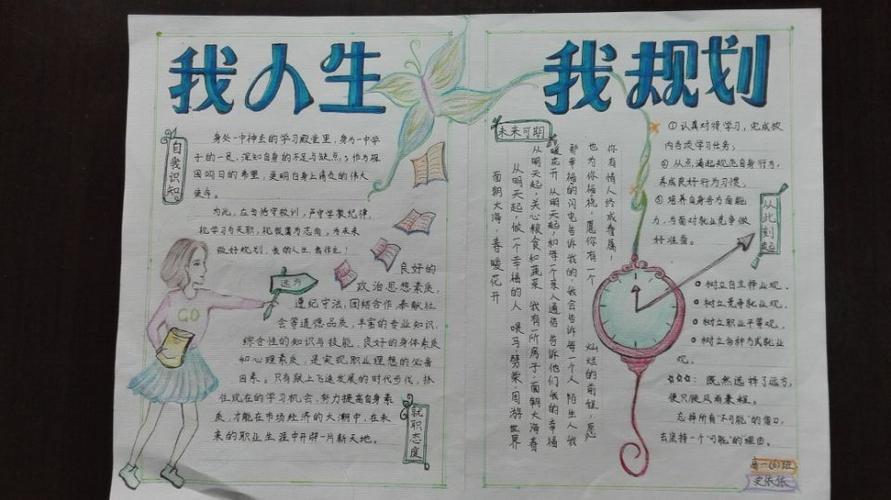 我人生
自我识知
身处一中神圣的学习殿堂里，身为一中学
子的一员，深知自身的不足与缺点；作为祖
国明日的希望，更明白身上肩负的伟大
使命。
为此，在当恪守校训，严守学教纪律，
以学习为天职，
做好规划，
远方
良好的
政治思想素质，
遵纪守法，团结合作，奉献社
会等道德品质，丰富的专业知识，
综合性的知识与技能，良好的身体素质
和心理素质，是实现职业理想的必备
因素。只有踏上飞速发展的时代步伐，抓
住现在的学习机会，努力提高自身素
质，才能在市场经济的大潮中，在未
来的职业生涯中开辟一片新天地。
就职态度
GO
我规划
未来可期
面朝大海，春暖花开
从明天起，做一个幸福的人 喂马劈柴，周游世界
从明天起，关心粮食和蔬菜 我有一所房子，面朝大海春
暖花开 从明天起，和每个亲人通信 告诉他们我的幸福
那幸福的闪电告诉我的，我会告诉每一个人 陌生人我
也为你祝福，愿你有一个 灿烂的前程，愿
你有情人终成眷属，
①认真对待学习，完成校
内各项学习任务；
②从点滴起规范自身行为，
养成良好行为习惯；
③培养自身各方面能
力，为面对就业竞争做
好准备。
从此刻起
树立自主择业观。
树立竞争就业观。
树立职业平等观。
树立多种方式就业
观。
既然选择了远方，
便只顾风雨兼程。
忘掉所有"不可能"的借口，
去坚持一个"可能"的理由。
高一(6)班